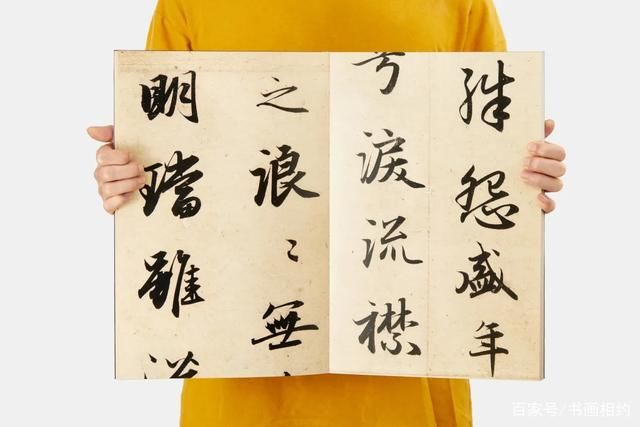 殊怨盛年
兮淚流襟
之浪〻無
明璫雖
百家号/书画相约